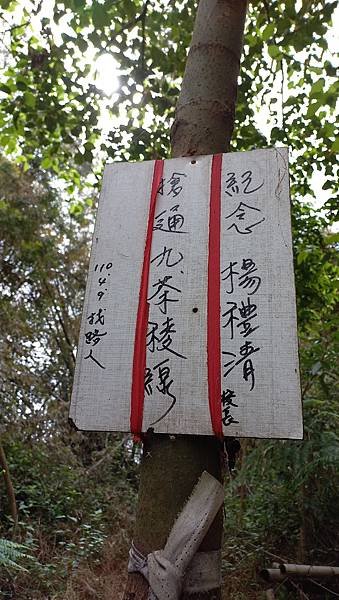 紀念 楊禮清 校長
搶通九茶稜線
110.4.9 找路人